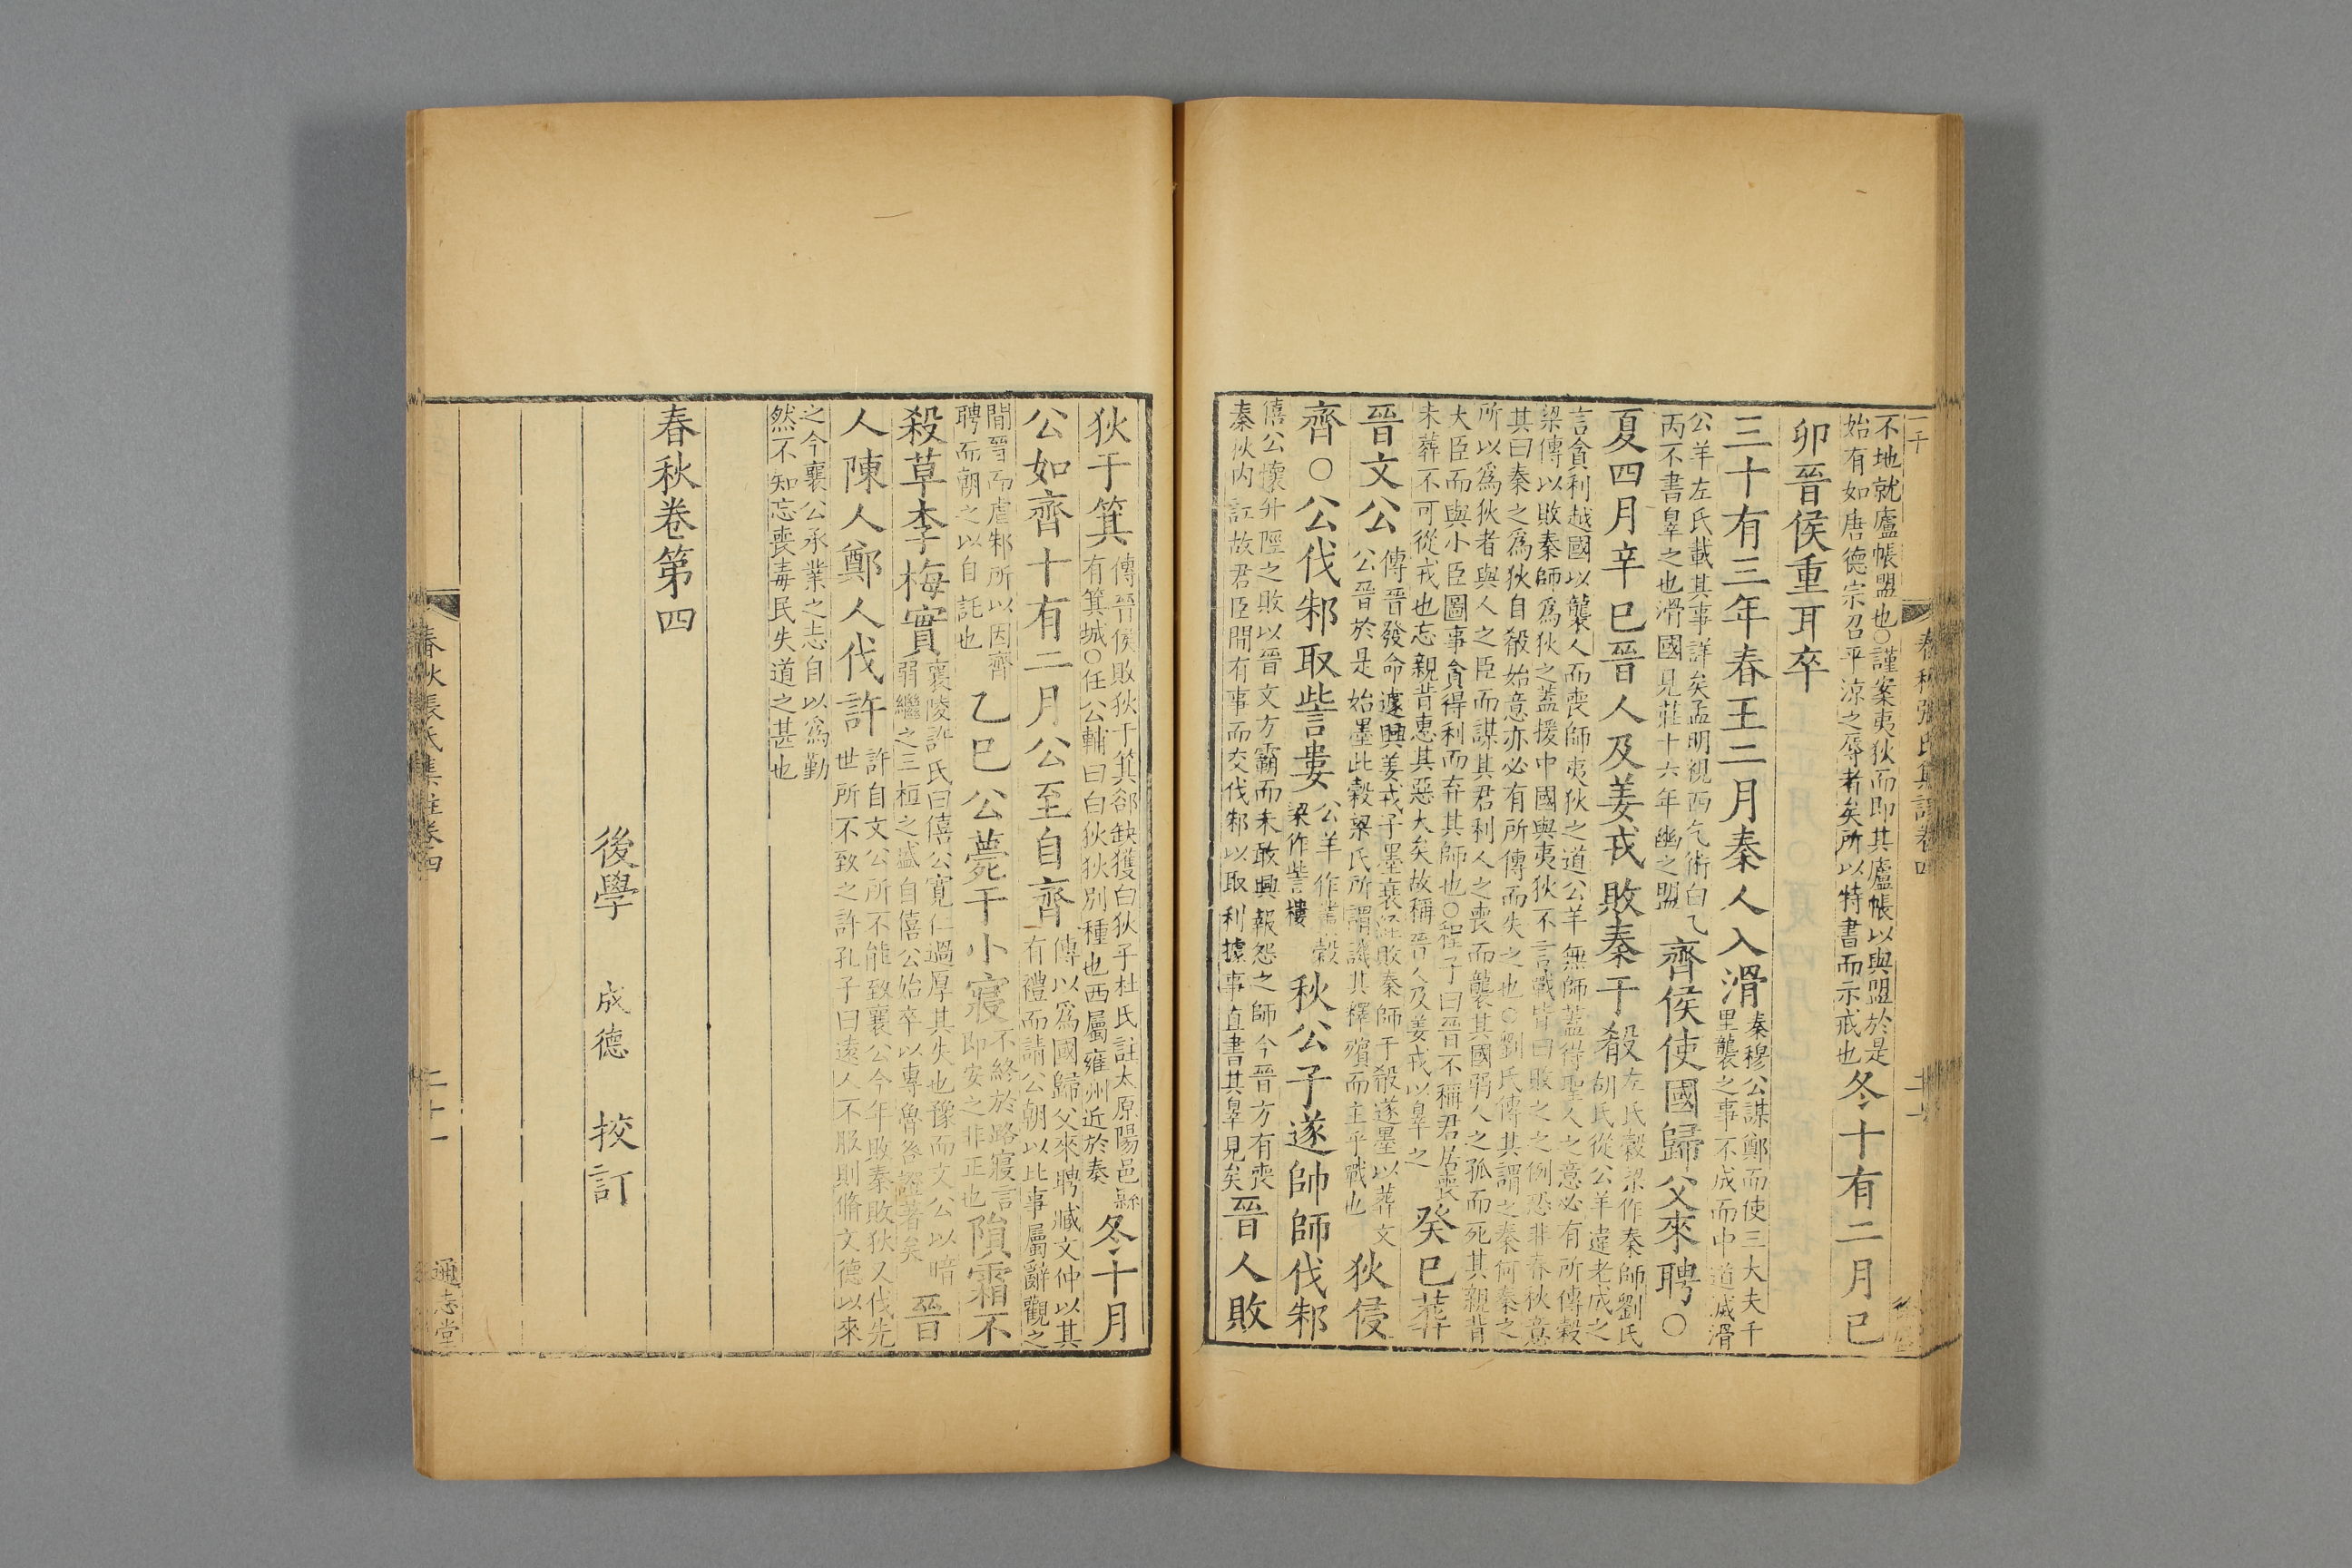 不地就廬帳盟也○謹案夷狄而即其廬帳以與盟於是
始有如唐德宗召平涼之辱者矣所以特書而示戒也
冬十有二月己
卯晉侯重耳卒
三十有三年春王二月秦人入滑
秦穆公謀鄭而使三大夫千
里襲之事不成而中道滅滑
公羊左氏載其事詳矣孟明視西乞術白乙
丙不書辠之也滑國見莊十六年幽之盟
齊侯使國歸父來聘○
夏四月辛巳晉人及姜戎敗秦于殽
左氏穀梁作秦師劉氏
胡氏從公羊違老成之
言貪利越國以襲人而喪師夷狄之道公羊無師蓋得聖人之意必有所傳穀
梁傳以敗秦師為狄之蓋援中國與夷狄不言戰皆曰敗之之例恐非春秋意
其曰秦之為狄自殽始意亦必有所傳而失之也○劉氏傳其謂之秦何秦之
所以為狄者與人之臣而謀其君利人之喪而襲其國弱人之孤而死其親背
大臣而與小臣圖事貪得利而弃其師也○程子曰晉不稱君居喪
未葬不可從戎也忘親背惠其惡大矣故稱晉人及姜戎以辠之
癸巳葬
晉文公
傳晉發命遽興姜戎子墨衰絰敗秦師于殽遂墨以葬文
公晉於是始墨此穀梁氏所謂譏其釋殯而主乎戰也
狄侵
齊○公伐邾取訾婁
公羊作叢穀
梁作訾樓
秋公子遂帥師伐邾
僖公懷升陘之敗以晉文方霸而未敢興報怨之師今晉方有喪
秦狄內訌故君臣間有事而交伐邾以取利據事直書其辠見矣
晉人敗
狄于箕
傳晉侯敗狄于箕郤缺獲白狄子杜氏註太原陽邑縣
有箕城○任公輔曰白狄狄別種也西屬雍州近於秦
冬十月
公如齊十有二月公至自齊
傳以為國歸父來聘臧文仲以其
有禮而請公朝以比事屬辭觀之
間晉而虐邾所以因齊
聘而朝之以自託也
乙巳公薨于小寢
不終於路寢言
即安之非正也
隕霜不
殺草李梅實
襄陵許氏曰僖公寬仁過厚其失也豫而文公以暗
弱繼之三桓之盛自僖公始卒以專魯咎證著矣
晉
人陳人鄭人伐許
許自文公所不能致襄公今年敗秦敗狄又伐先
世所不致之許孔子曰遠人不服則脩文德以來
之今襄公承業之志自以為勤
然不知忘喪毒民失道之甚也
春秋卷第四
後學 成德 挍訂
春秋張氏集註卷四
二十一
通志堂